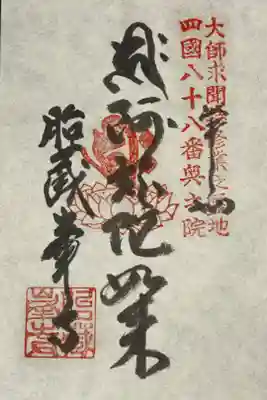 大師求聞持修業之霊地
四國八十八番奥之院
阿弥陀如来
胎蔵峯寺